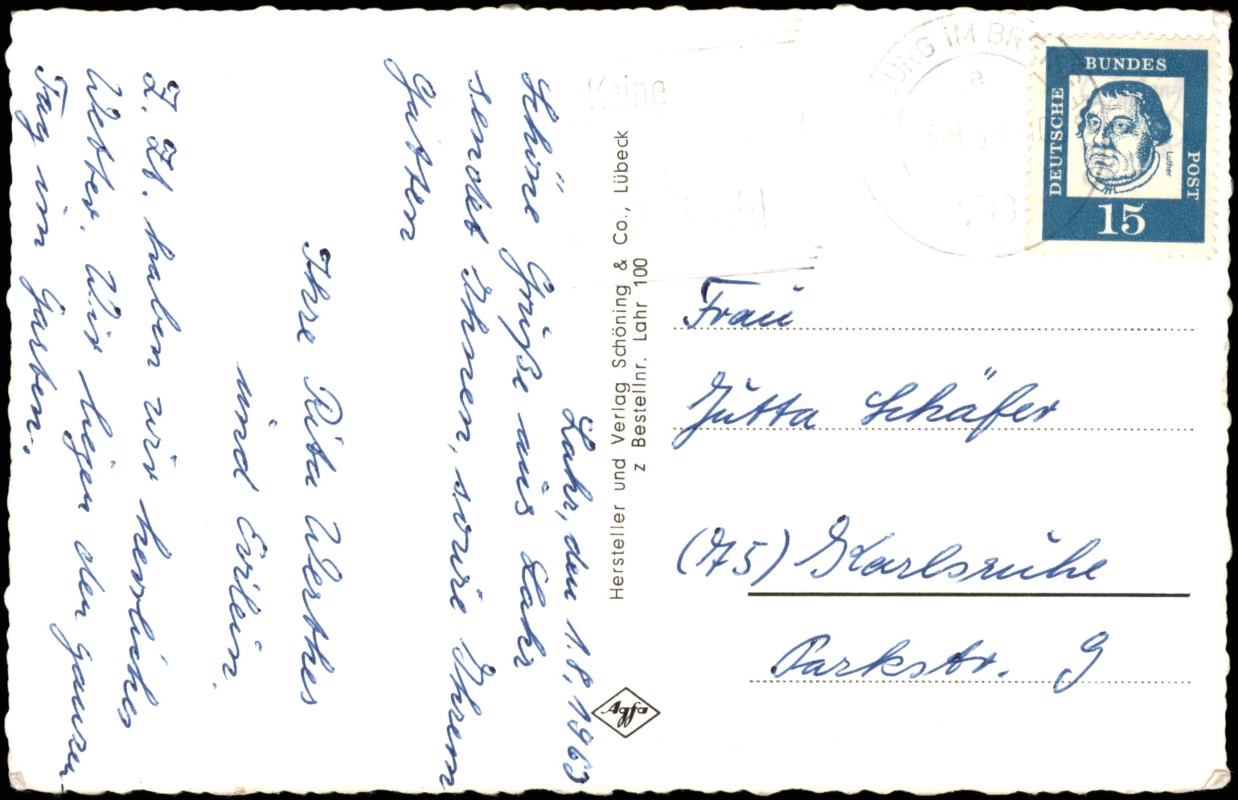 Lahr, den 1.8.1963
Schöne Grüße aus Lahr
sendet Ihnen, sowie Ihrem
Gatten
Ihre Rita Werthes
und Evilein.
Z. Zt. haben wir herrliches
Wetter. Wir liegen den ganzen
Tag im Garten.
Hersteller und Verlag Schöning & Co., Lübeck
z Bestellnr. Lahr 100
Agfa
Keine
BURG IM BR
a
DEUTSCHE
BUNDES
POST
Luther
15
Frau
Jutta Schäfer
(75) Karlsruhe
Parkstr. 9